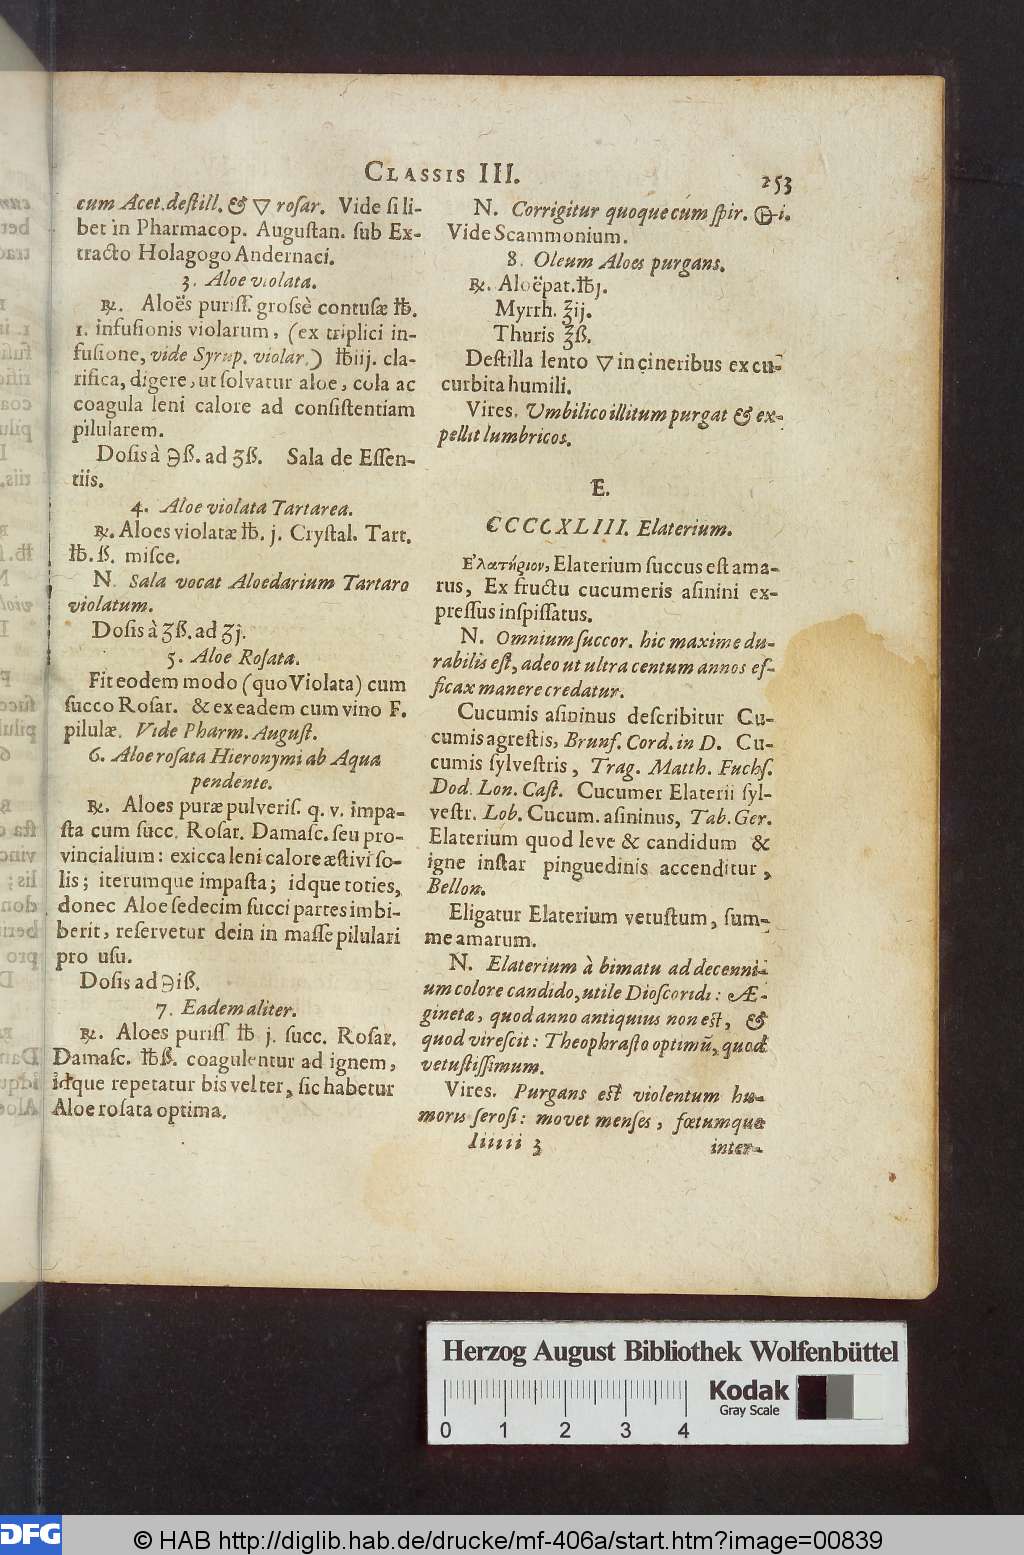 CLASSIS III.
253
cum Acet. deſtill. & ▽ roſar. Vide ſi li-
bet in Pharmacop. Auguſtan. ſub Ex-
tracto Holagogo Andernaci.
3. Aloe violata.
℞. Aloës puriſſ. groſsè contuſæ ℔.
1. infuſionis violarum, (ex triplici in-
fuſione, vide Syrup. violar.) ℔iij. cla-
rifica, digere, ut ſolvatur aloe, cola ac
coagula leni calore ad conſiſtentiam
pilularem.
Doſis à ℈ß. ad ʒß. Sala de Eſſen-
tiis.
4. Aloe violata Tartarea.
℞. Aloes violatæ ℔. j. Cryſtal. Tart.
℔. ß. miſce.
N. Sala vocat Aloedarium Tartaro
violatum.
Doſis à ʒß. ad ʒj.
5. Aloe Roſata.
Fit eodem modo (quo Violata) cum
ſucco Roſar. & ex eadem cum vino F.
pilulæ. Vide Pharm. Auguſt.
6. Aloe roſata Hieronymi ab Aqua
pendente.
℞. Aloes puræ pulveriſ. q. v. impa-
ſta cum ſucc. Roſar. Damaſc. ſeu pro-
vincialium: exicca leni calore æſtivi ſo-
lis; iterumque impaſta; idque toties,
donec Aloe ſedecim ſucci partes imbi-
berit, reſervetur dein in maſſe pilulari
pro uſu.
Doſis ad ℈iß.
7. Eadem aliter.
℞. Aloes puriſſ ℔ j. ſucc. Roſar.
Damaſc. ℔ß. coagulentur ad ignem,
idque repetatur bis vel ter, ſic habetur
Aloe roſata optima.
N. Corrigitur quoque cum ſpir. i.
Vide Scammonium.
8. Oleum Aloes purgans.
℞. Aloëpat. ℔j.
Myrrh. ℥ij.
Thuris ℥ß.
Deſtilla lento ▽ in cineribus ex cu-
curbita humili.
Vires. Umbilico illitum purgat & ex-
pellit lumbricos.
E.
CCCCXLIII. Elaterium.
Ἐλατήριον, Elaterium ſuccus eſt ama-
rus, Ex fructu cucumeris aſinini ex-
preſſus inſpiſſatus.
N. Omnium ſuccor. hic maxime du-
rabilis eſt, adeo ut ultra centum annos ef-
ficax manere credatur.
Cucumis aſininus deſcribitur Cu-
cumis agreſtis, Brunf. Cord. in D. Cu-
cumis ſylveſtris, Trag. Matth. Fuchſ.
Dod. Lon. Caſt. Cucumer Elaterii ſyl-
veſtr. Lob. Cucum. aſininus, Tab. Ger.
Elaterium quod leve & candidum &
igne inſtar pinguedinis accenditur,
Bellon.
Eligatur Elaterium vetuſtum, ſum-
me amarum.
N. Elaterium à bimatu ad decenni-
um colore candido, utile Dioſcoridi: Æ-
ginetæ, quod anno antiquius non eſt, &
quod vireſcit: Theophraſto optimũ, quod
vetuſtiſſimum.
Vires. Purgans eſt violentum hu-
moris ſeroſi: movet menſes, fœtumque
Iiiiii 3
inter-
Herzog August Bibliothek Wolfenbüttel
Kodak
Gray Scale
0 1 2 3 4
DFG
© HAB http://diglib.hab.de/drucke/mf-406a/start.htm?image=00839